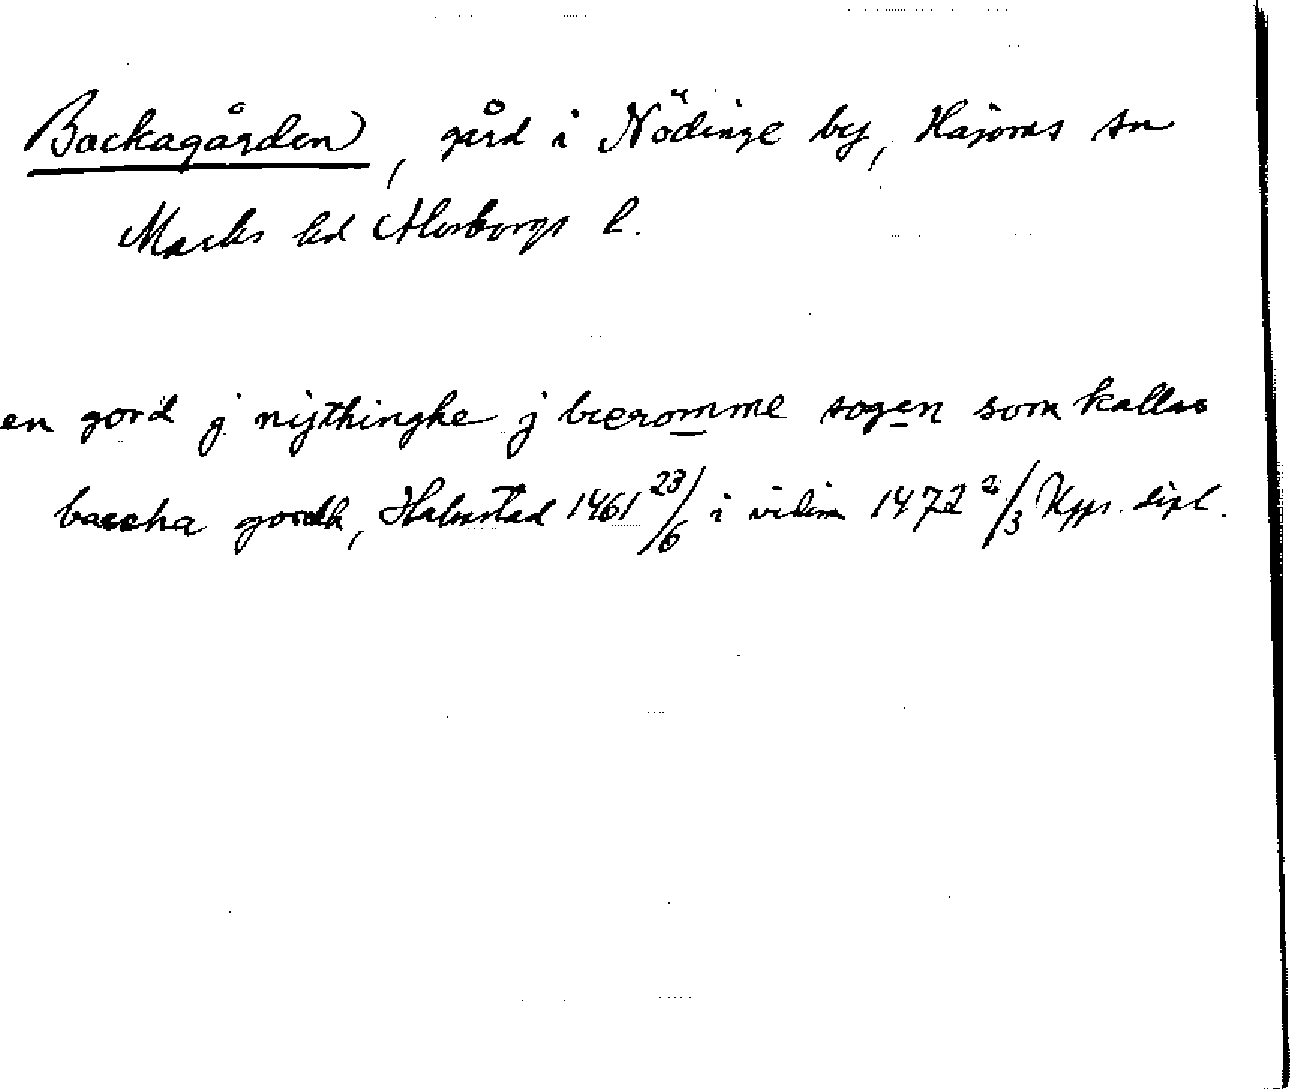 Backagården, gård i Nödinge by, Hajoms sn
Marks hd Älvsborgs l.
en gord j nijthinghe j hæromme sogen som kallas
baccha gordh, Halmstad 1461 23/6 i vidim 1472 2/3 Kpps. dipl.